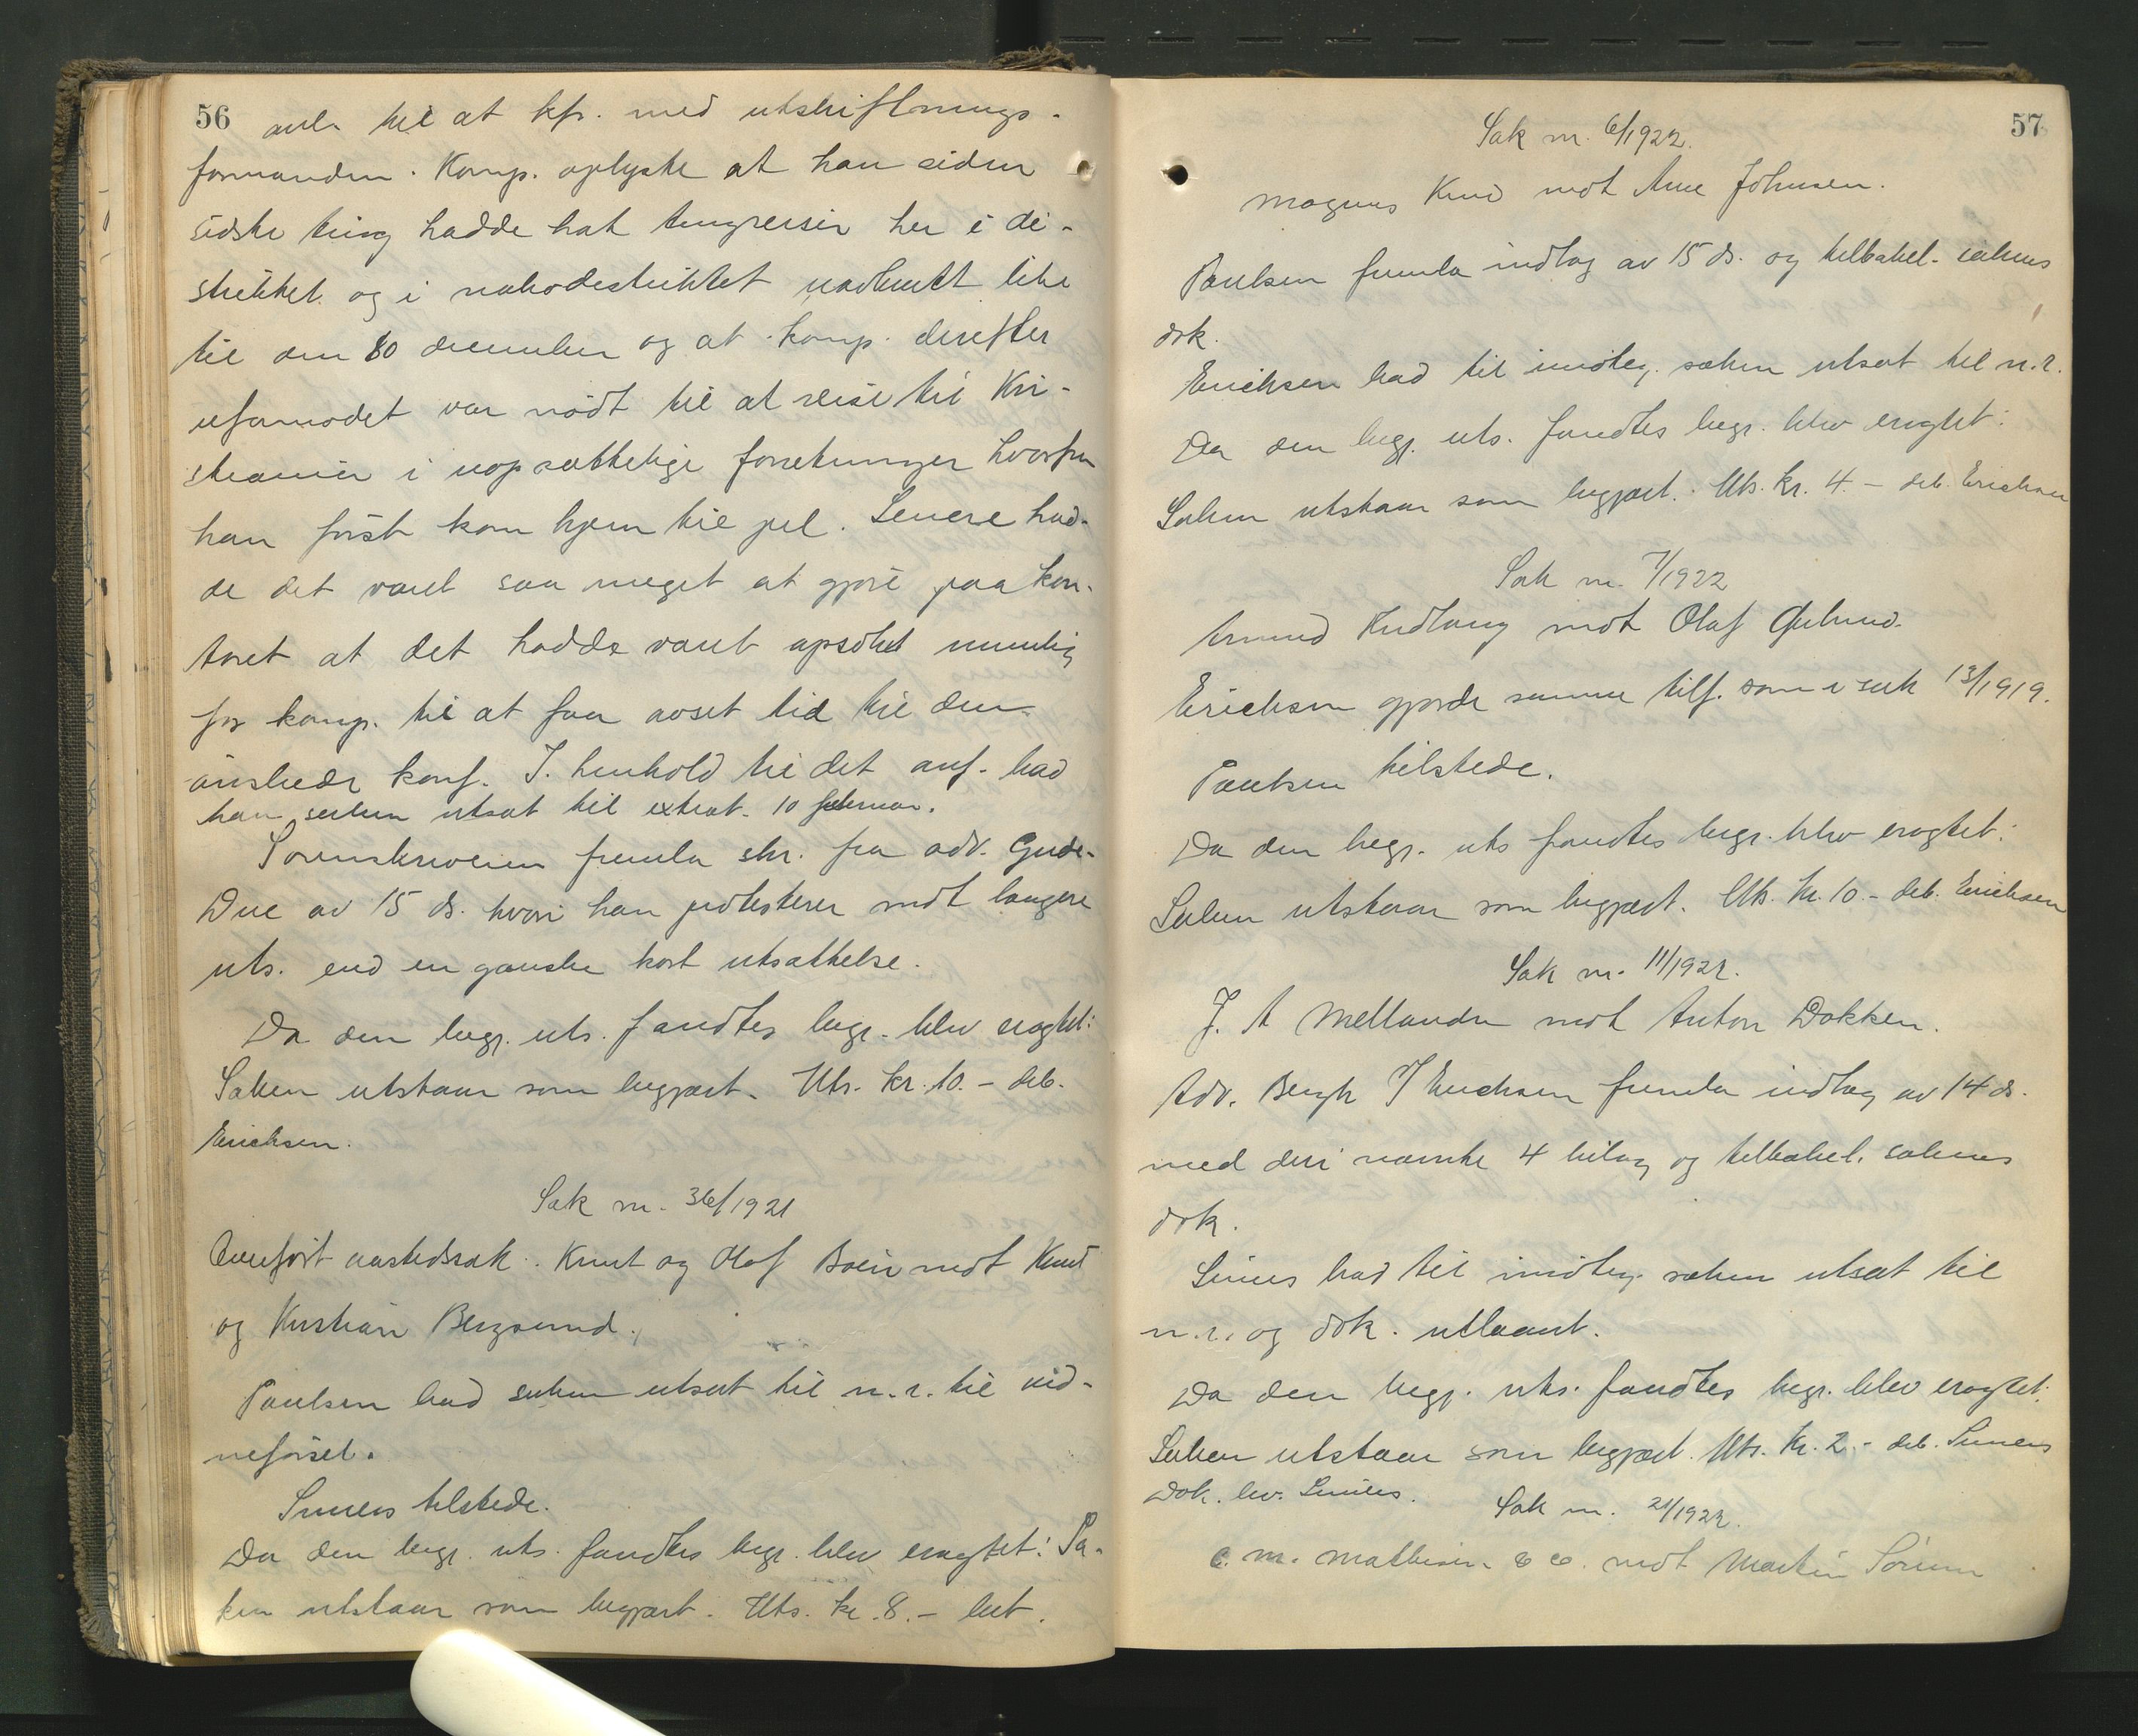 56
anl. til at kfr. med utskiftnings-
formanden. Komp. oplyste at han siden
sidste ting hadde hat tingreiser her i di-
striktet og i nabodistriktet uavbrutt like
til den 20 december og at komp. derefter
uformodet var nødt til at reise til Kri-
stiania i uopsættelige forretninger hvorfra
han først kom hjem til jul. Senere had-
de det været saa meget at gjøre paa kon-
toret at det hadde været absolut umulig
for komp. til at faa avset tid til den
ønskede konf. I henhold til det anf. bad
han saken utsat til extrat. 10 februar.
Sorenskriveren fremla skr. fra adv. Gude-
Due av 15 ds. hvori han protesterer mot længere
uts. end en ganske kort utsættelse.
Da den begj. uts. fandtes begr. blev eragtet:
Saken utstaar som begjært. Uts. kr. 10.- deb.
Erichsen.
Sak nr. 36/1921
Knut og Olaf Bøen mot Knut
og Kristian Bergsund.
Paulsen bad saken utsat til n. r. til vid-
neførsel.
Sinnes tilstede.
Da den begj. uts. fandtes begr. blev eragtet: Sa-
ken utstaar som begjært. Uts. kr. 8.- bet.
57
Sak nr. 6/1922.
Magnus Kind mot Arne Johnsen.
Paulsen fremla indlæg av 15 ds. og tilbakel. sakens
dok.
Erichsen bad til imøteg. saken utsat til n. r.
Da den begj. uts. fandtes begr. blev eragtet:
Saken utstaar som begjært. Uts. kr. 4.- deb. Erichsen
Sak nr. 7/1922
Amund mot Olaf
Erichsen gjorde samme tilf. som i sak 13/1919.
Paulsen tilstede.
Da den begj. uts fandtes begr. blev eragtet:
Saken utstaar som begjært. Uts. kr. 10.- deb. Erichsen
Sak nr. 11/1922.
J. A Mellanden mot Anton Dokken.
Adv. Bergh v/ Erichsen fremla indlæg av 14 ds.
med deri nævnte 4 bilag og tilbakel. sakens
dok.
Sinnes bad til imøteg. saken utsat til
n. r., og dok. utlaant.
Da den begj. uts. fandtes begr. blev eragtet:
Saken utstaar som begjært. Uts. kr. 2.- deb. Sinnes
Dok. lev. Sinnes.
Sak nr. 21/1922.
C. M. Mathisen & Co. mot Martin Sørum